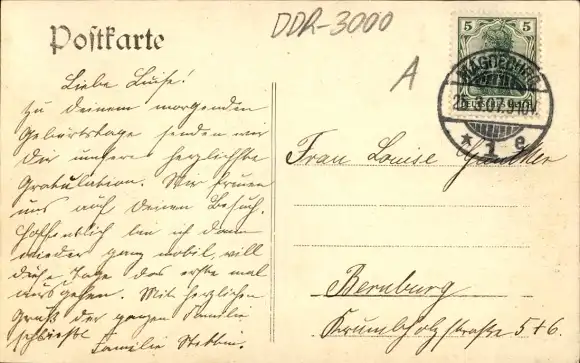 DDR-3000
Postkarte
A
5 5
MAGDEBURG
25.3.07.9-10V.
* 1 e
Liebe Luise!
Zu deinem morgenden
Geburtstage senden wir
Dir unsere herzlichste
Gratulation. Wir freuen
uns auf Deinen Besuch.
Hoffentlich bin ich dann
wieder ganz mobil, will
diese Tage das erste mal
ausgehen. Mit herzlichem
Gruß der ganzen Familie
schließt
Familie
Frau Louise
Bernburg
Krumbholzstraße 5+6.